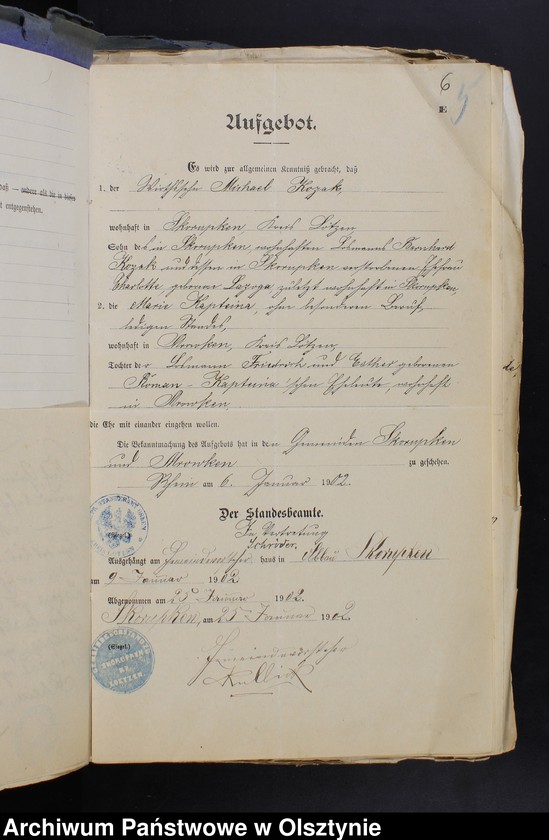 6
E 5
Aufgebot.
Es wird zur allgemeinen Kenntniß gebracht, daß
1. der Wirthssohn Michael Kozak,
wohnhaft in Skorupken, Kreis Lötzen
Sohn des in Skorupken wohnhaften Lolmanns Bernhard
Kozak und dessen in Skorupken verstorbenen Ehefrau
Charlotte, geborne Lazoga zuletzt wohnhaft in Skorupken,
2. die Marie Kapteina, ohne besonderen Beruf,
ledigen Standes,
wohnhaft in Mrowken, Kreis Lötzen,
Tochter der Lolmann Friedrich und Esther geborenen
Roman - Kapteina'schen Eheleute, wohnhaft
in Mrowken,
die Ehe mit einander eingehen wollen.
Die Bekanntmachung des Aufgebots hat in den Gemeinden Skorupken
und Mrowken zu geschehen.
Rhein am 6. Januar 1902.
Der Standesbeamte.
In Vertretung
Schröder.
Ausgehängt am Gemeindevorsteher haus in Skorupken
am 9. Januar 1902
Abgenommen am 25. Januar 1902.
Skorupken, am 25. Januar 1902.
(Siegel.)
Gemeindevorsteher
SKORUPKEN
KR. LOETZEN
daß — anders als in dieser
t entgegenstehen.
Archiwum Państwowe w Olsztynie